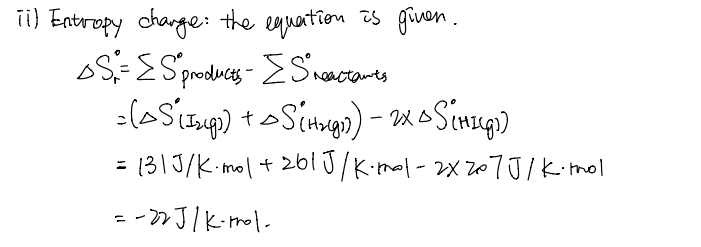 ii) Entropy change: the equation is given.
ΔS°r = ΣS°products - ΣS°reactants
= (ΔS°(I2(g)) + ΔS°(H2(g))) - 2×ΔS°(HI(g))
= 131 J/K·mol + 261 J/K·mol - 2×207 J/K·mol
= -22 J/K·mol.